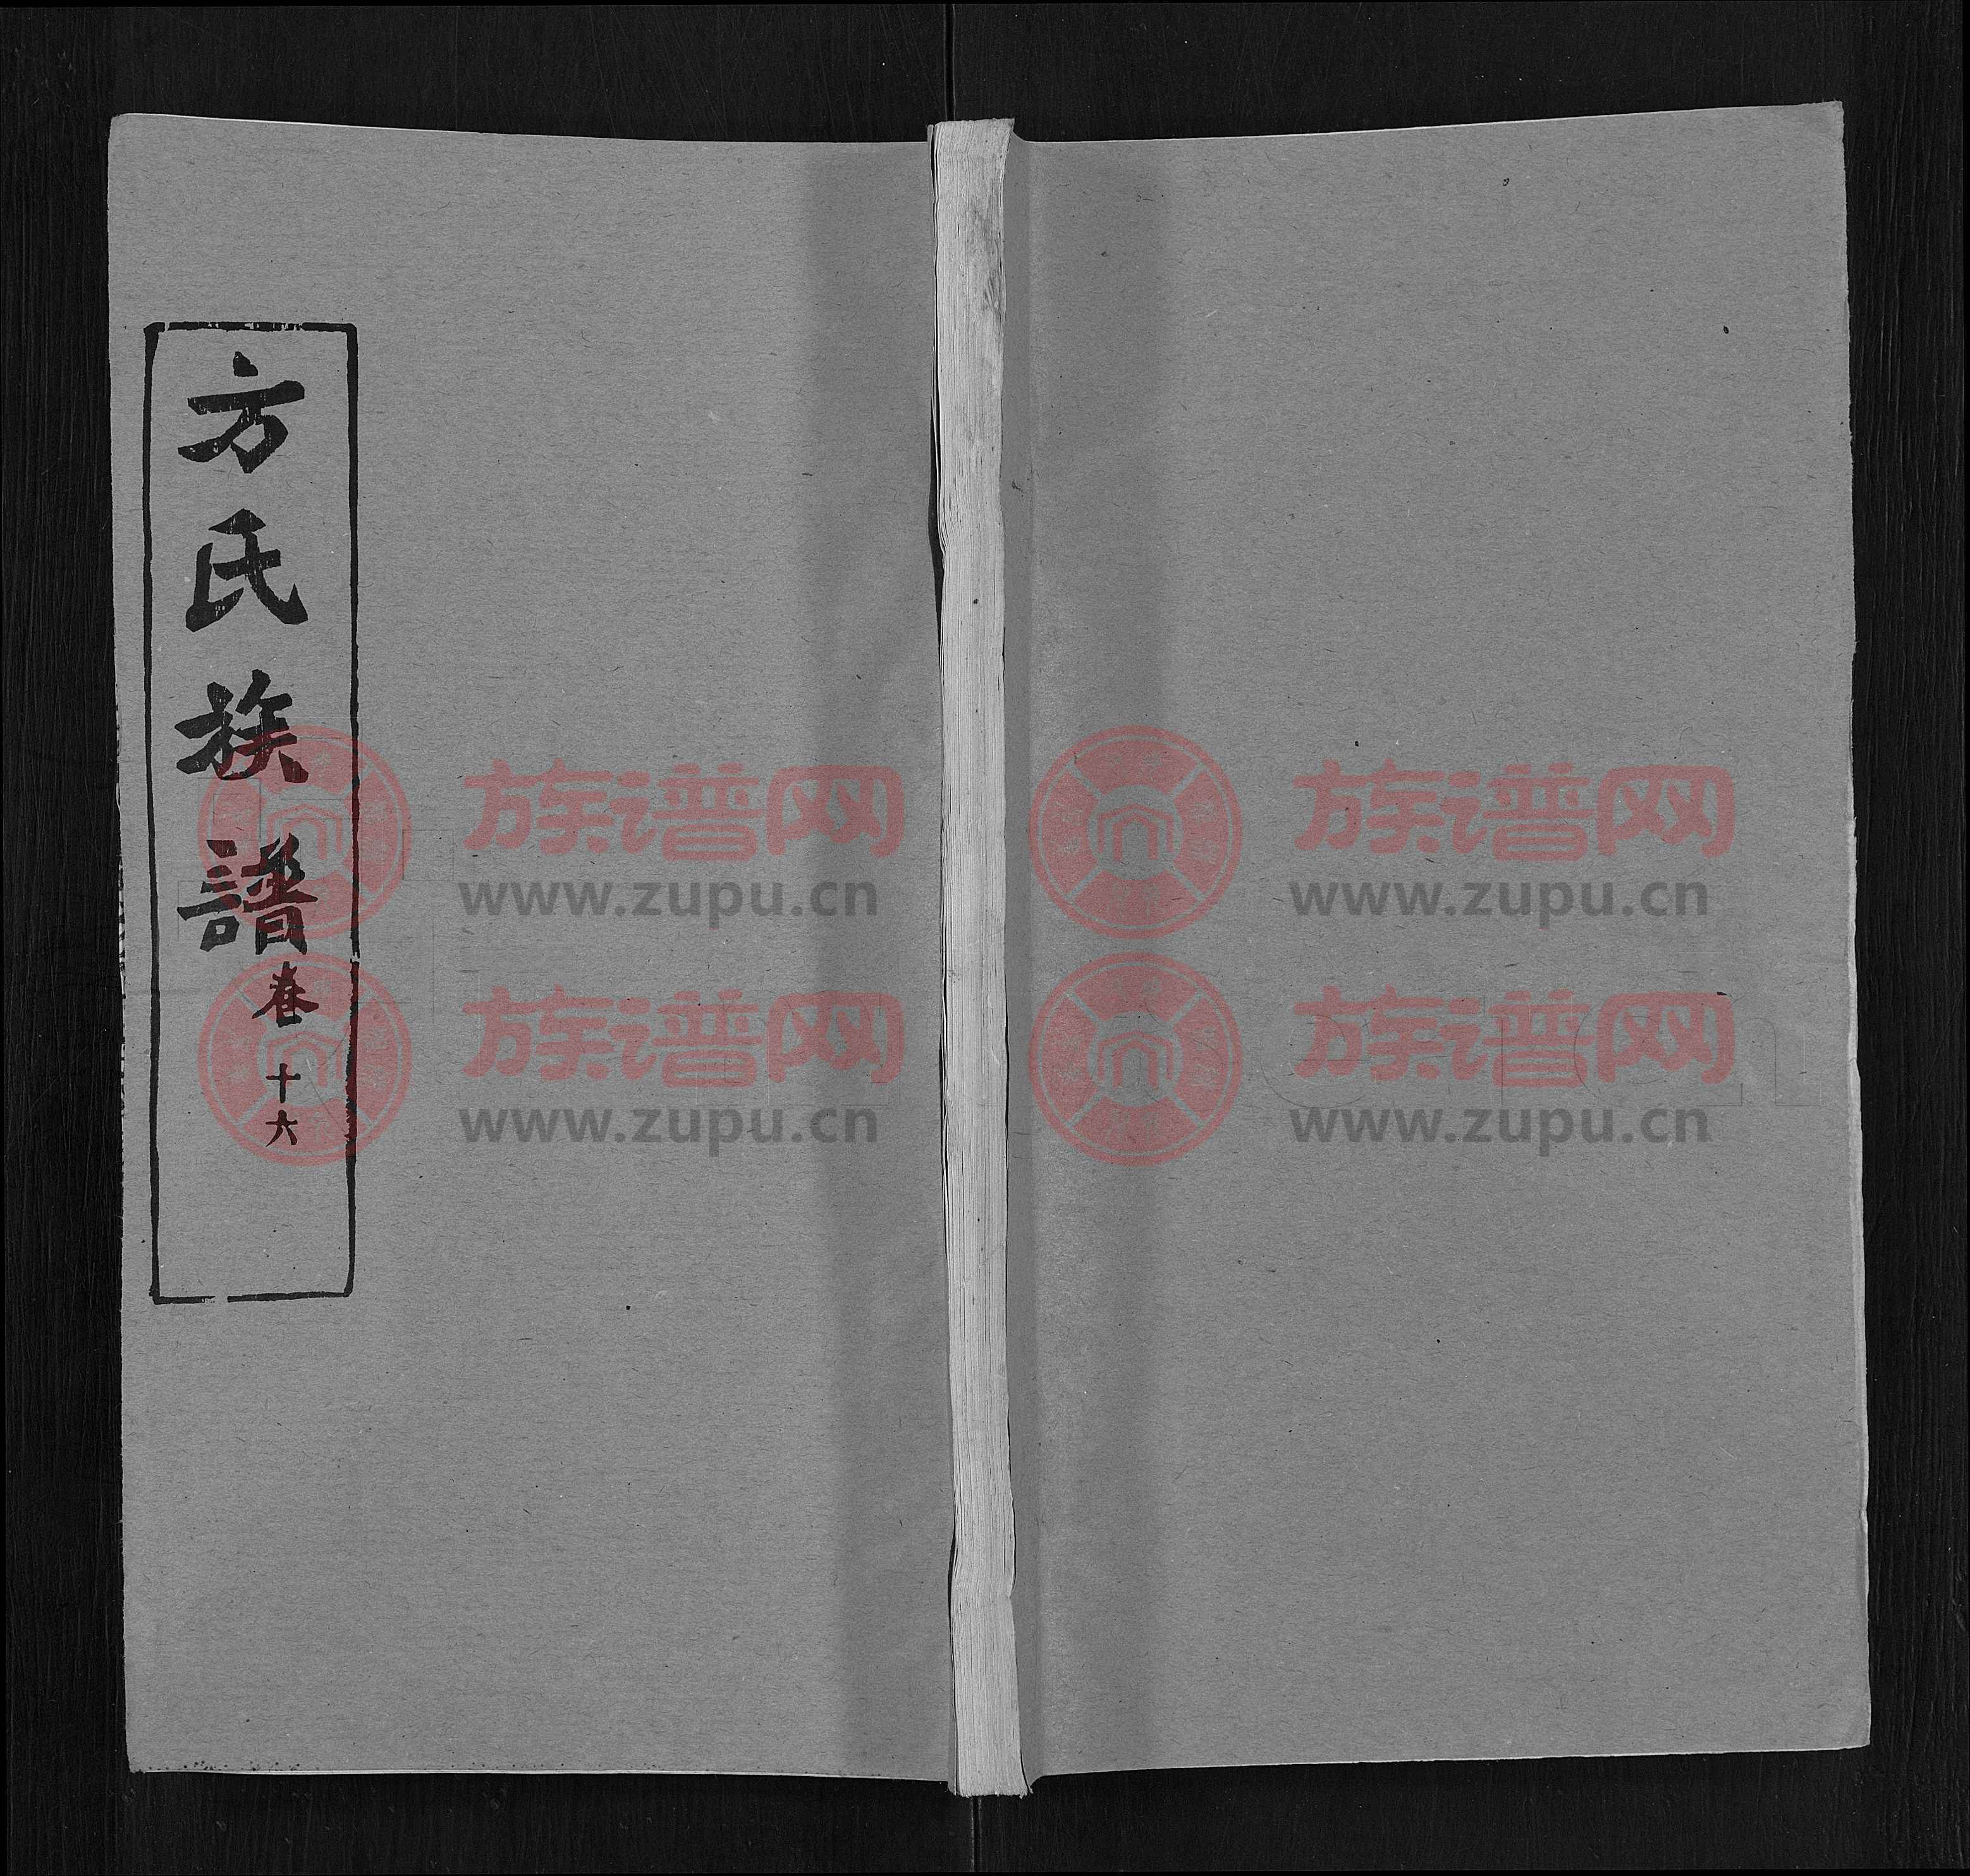 方氏族譜
卷十六
族谱网
www.zupu.cn
族谱网
www.zupu.cn
族谱网
www.zupu.cn
族谱网
www.zupu.cn